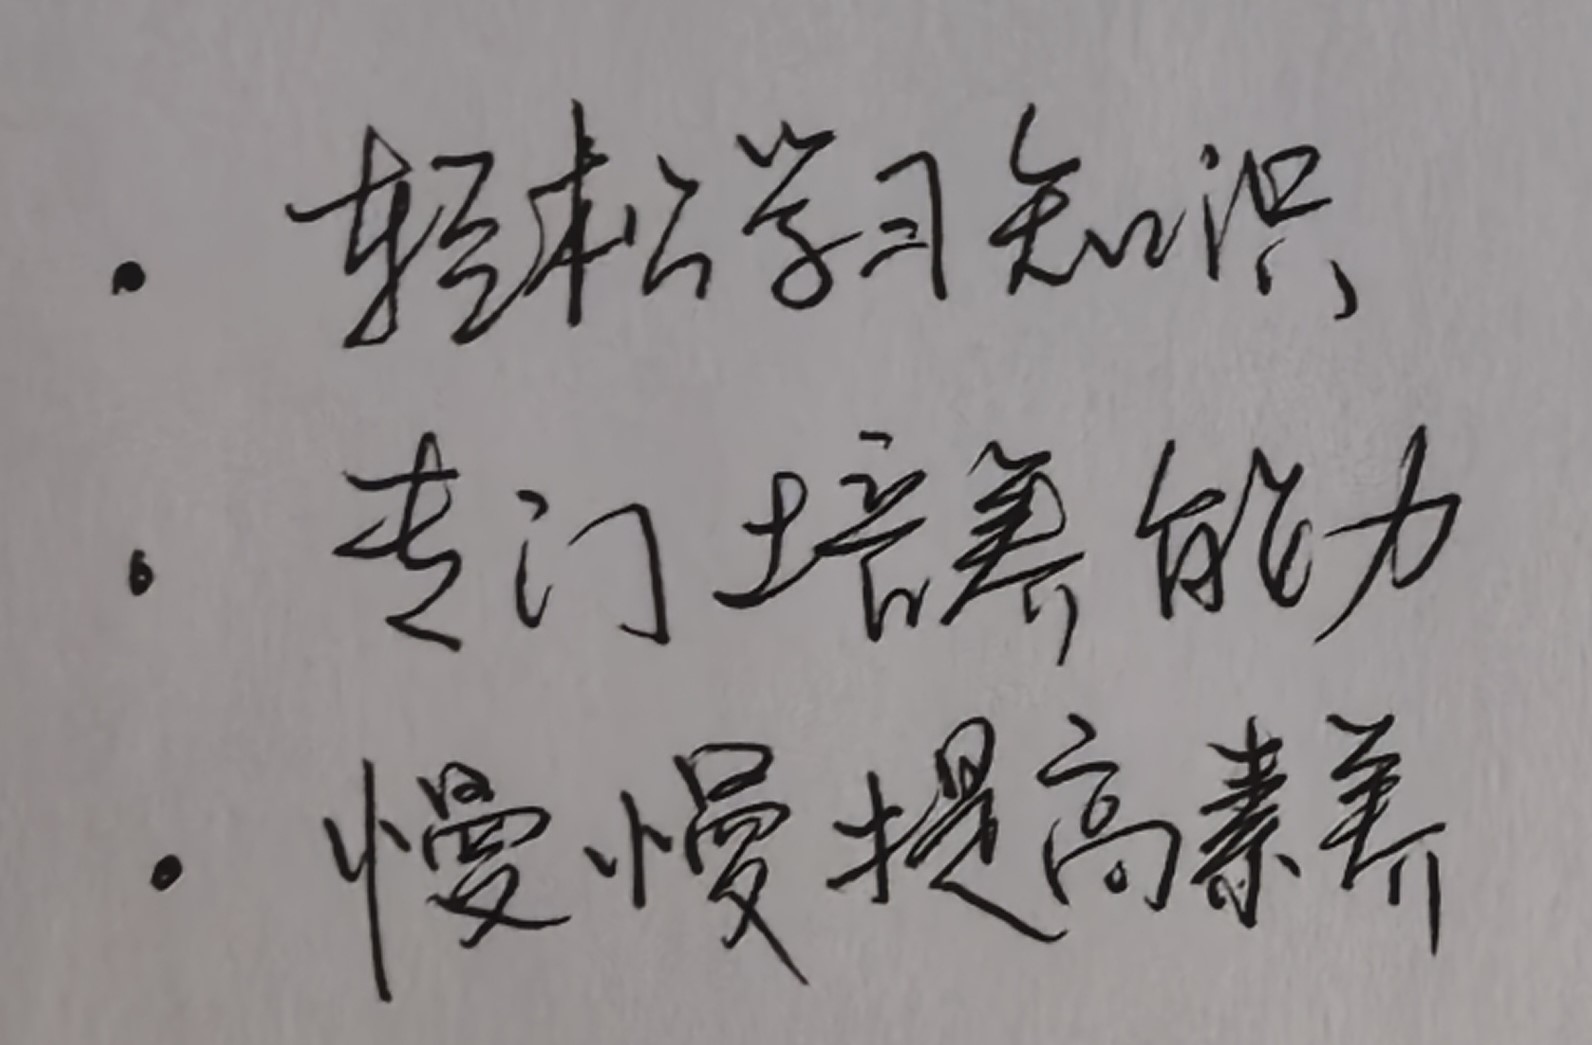 · 轻松学习知识
· 专门培养能力
· 慢慢提高素养